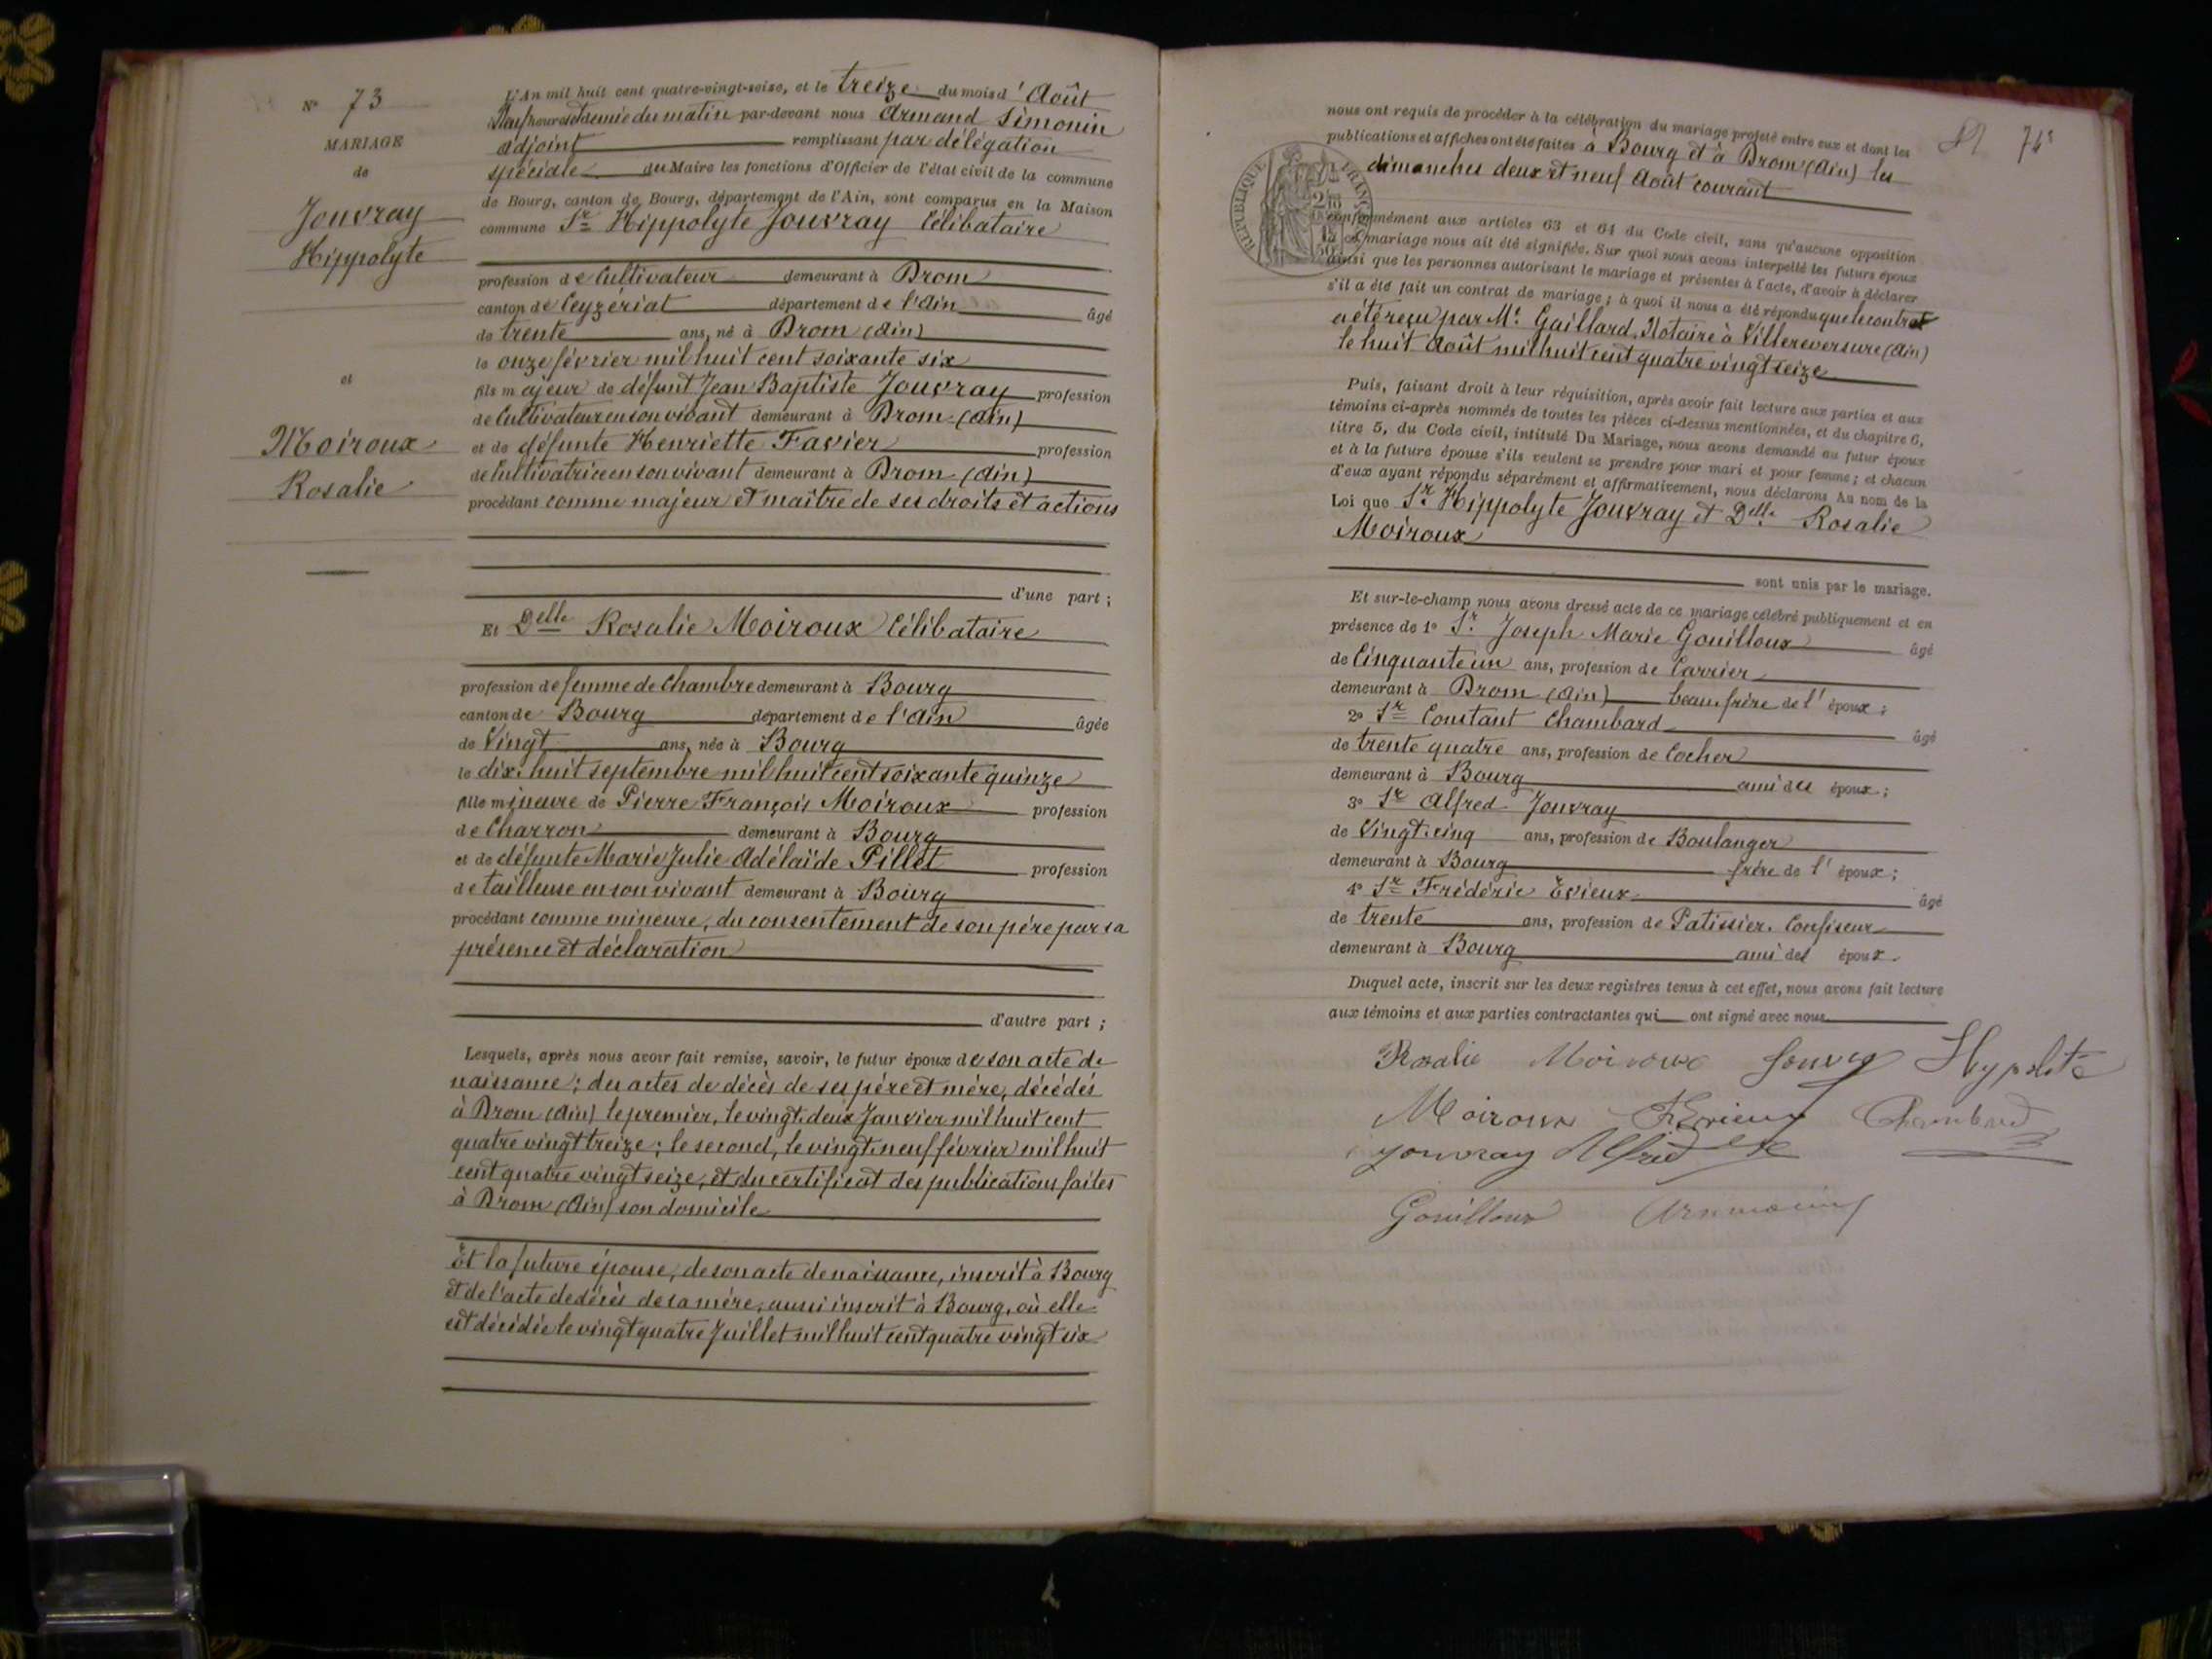 N° 73
MARIAGE
de
Jouvray
Hippolyte
et
Moiroux
Rosalie
L'An mil huit cent quatre-vingt-seize, et le treize du mois d'Août
Neuf heures et demie du matin par-devant nous Armand Simonin
adjoint remplissant par délégation
spéciale du Maire les fonctions d'Officier de l'état civil de la commune
de Bourg, canton de Bourg, département de l'Ain, sont comparus en la Maison
commune Sr Hippolyte Jouvray Célibataire
profession de Cultivateur demeurant à Drom
canton de Ceyzériat département de l'Ain âgé
de trente ans, né à Drom (Ain)
le onze février mil huit cent soixante six
fils majeur de défunt Jean Baptiste Jouvray profession
de Cultivateur en son vivant demeurant à Drom (Ain)
et de défunte Henriette Favier profession
de Cultivatrice en son vivant demeurant à Drom (Ain)
procédant comme majeur et maître de ses droits et actions
d'une part ;
Et Delle Rosalie Moiroux Célibataire
profession de femme de Chambre demeurant à Bourg
canton de Bourg département de l'Ain âgée
de Vingt ans, née à Bourg
le dix-huit septembre mil huit cent soixante quinze
fille mineure de Pierre François Moiroux profession
de Charron demeurant à Bourg
et de défunte Marie Julie Adélaïde Pillet profession
de tailleuse en son vivant demeurant à Bourg
procédant comme mineure, du consentement de son père par sa
présence et déclaration
d'autre part ;
Lesquels, après nous avoir fait remise, savoir, le futur époux de son acte de
naissance ; des actes de décès de ses père et mère, décédés
à Drom (Ain) le premier, le vingt-deux Janvier mil huit cent
quatre vingt treize ; le second, le vingt-neuf février mil huit
cent quatre vingt seize, et du certificat des publications faites
à Drom (Ain) son domicile
Et la future épouse, de son acte de naissance, inscrit à Bourg
et de l'acte de décès de sa mère, aussi inscrit à Bourg, où elle
est décédée le vingt quatre Juillet mil huit cent quatre vingt six
74
nous ont requis de procéder à la célébration du mariage projeté entre eux et dont les
publications et affiches ont été faites à Bourg et à Drom (Ain) les
dimanches deux et neuf Août courant
REPUBLIQUE FRANÇAISE
conformément aux articles 63 et 64 du Code civil, sans qu'aucune opposition
à ce mariage nous ait été signifiée. Sur quoi nous avons interpellé les futurs époux
ainsi que les personnes autorisant le mariage et présentes à l'acte, d'avoir à déclarer
s'il a été fait un contrat de mariage ; à quoi il nous a été répondu que le contrat
a été reçu par Me Gaillard, Notaire à Villereversure (Ain)
le huit Août mil huit cent quatre vingt seize
Puis, faisant droit à leur réquisition, après avoir fait lecture aux parties et aux
témoins ci-après nommés de toutes les pièces ci-dessus mentionnées, et du chapitre 6,
titre 5, du Code civil, intitulé Du Mariage, nous avons demandé au futur époux
et à la future épouse s'ils veulent se prendre pour mari et pour femme ; et chacun
d'eux ayant répondu séparément et affirmativement, nous déclarons Au nom de la
Loi que Sr Hippolyte Jouvray et Delle Rosalie
Moiroux
sont unis par le mariage.
Et sur-le-champ nous avons dressé acte de ce mariage célébré publiquement et en
présence de 1° Sr Joseph Marie Gouilloux âgé
de Cinquante un ans, profession de Carrier
demeurant à Drom (Ain) beau-frère de l'époux ;
2° Sr Constant Chambard âgé
de trente quatre ans, profession de Cocher
demeurant à Bourg ami des époux ;
3° Sr Alfred Jouvray
de Vingt-cinq ans, profession de Boulanger
demeurant à Bourg frère de l'époux ;
4° Sr Frédéric Evieux âgé
de trente ans, profession de Patissier-Confiseur
demeurant à Bourg ami des époux.
Duquel acte, inscrit sur les deux registres tenus à cet effet, nous avons fait lecture
aux témoins et aux parties contractantes qui ont signé avec nous
Rosalie Moiroux Jouvray Hypolite
Moiroux F. Evieux Chambard
Jouvray Alfred
Gouilloux